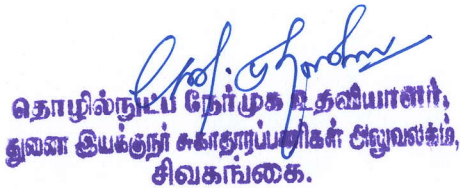 தொழில்நுட்ப நேர்முக உதவியாளர்,
துணை இயக்குநர் சுகாதாரப்பணிகள் அலுவலகம்,
சிவகங்கை.